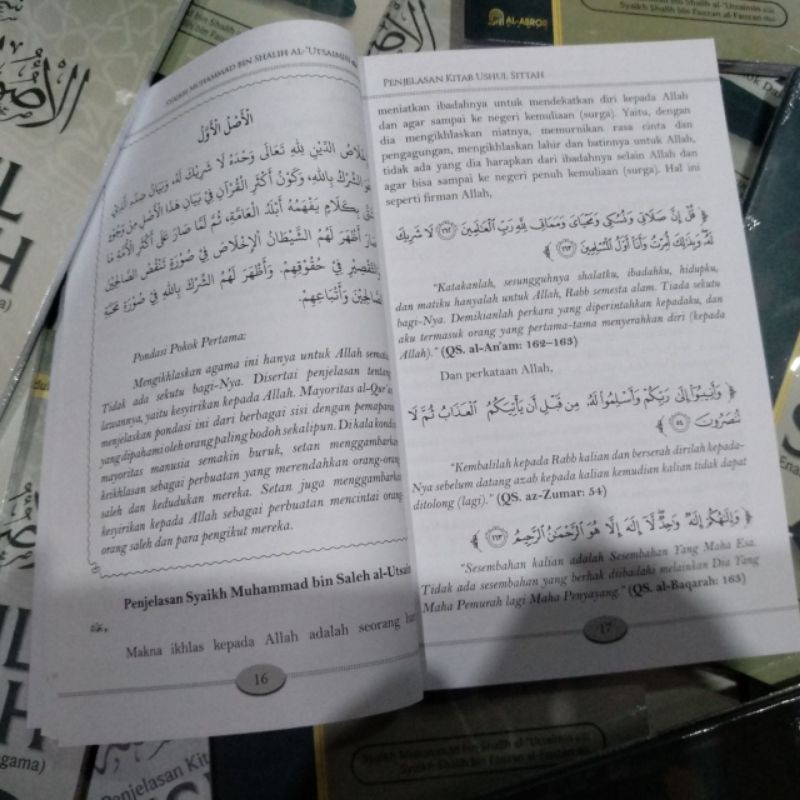 SYAIKH MUHAMMAD BIN SHALIH AL-'UTSAIMIN
الْأَصْلُ الْأَوَّلُ
الدِّيْنِ لِلّٰهِ تَعَالَى وَحْدَهُ لَا شَرِيْكَ لَهُ، وَبَيَانُ ضِدِّهِ الَّذِيْ
الشِّرْكُ بِاللّٰهِ، وَكَوْنُ أَكْثَرِ الْقُرْآنِ فِيْ بَيَانِ هٰذَا الْأَصْلِ مِنْ وُجُوْهٍ
بِكَلَامٍ يَفْهَمُهُ أَبْلَدُ الْعَامَّةِ، ثُمَّ لَمَّا صَارَ عَلَى أَكْثَرِ الْأُمَّةِ مَا
أَظْهَرَ لَهُمُ الشَّيْطَانُ الْإِخْلَاصَ فِيْ صُوْرَةِ تَنَقُّصِ الصَّالِحِيْنَ
وَالتَّقْصِيْرِ فِيْ حُقُوْقِهِمْ. وَأَظْهَرَ لَهُمُ الشِّرْكَ بِاللّٰهِ فِيْ صُوْرَةِ مَحَبَّةِ
الصَّالِحِيْنَ وَأَتْبَاعِهِمْ.
Pondasi Pokok Pertama:
Mengikhlaskan agama ini hanya untuk Allah
Tidak ada sekutu bagi-Nya. Disertai penjelasan tentang
lawannya, yaitu kesyirikan kepada Allah. Mayoritas al-Qur'an
menjelaskan pondasi ini dari berbagai sisi dengan
yang dipahami oleh orang paling bodoh sekalipun. Di kala kondisi
mayoritas manusia semakin buruk, setan menggambarkan
keikhlasan sebagai perbuatan yang merendahkan orang-orang
saleh dan kedudukan mereka. Setan juga menggambarkan
kesyirikan kepada Allah sebagai perbuatan mencintai orang
orang saleh dan para pengikut mereka.
Penjelasan Syaikh Muhammad bin Saleh al-Utsaimin
Makna ikhlas kepada Allah adalah seorang
16
PENJELASAN KITAB USHUL SITTAH
meniatkan ibadahnya untuk mendekatkan diri kepada Allah
dan agar sampai ke negeri kemuliaan (surga). Yaitu, dengan
dia mengikhlaskan niatnya, memurnikan rasa cinta dan
pengagungan, mengikhlaskan lahir dan batinnya untuk Allah,
tidak ada yang dia harapkan dari ibadahnya selain Allah dan
agar bisa sampai ke negeri penuh kemuliaan (surga). Hal ini
seperti firman Allah,
﴿ قُلْ إِنَّ صَلَاتِى وَنُسُكِى وَمَحْيَاىَ وَمَمَاتِى لِلَّهِ رَبِّ ٱلْعَـٰلَمِينَ ١٦٢ لَا شَرِيكَ
لَهُۥ وَبِذَٰلِكَ أُمِرْتُ وَأَنَا۠ أَوَّلُ ٱلْمُسْلِمِينَ ١٦٣ ﴾
"Katakanlah, sesungguhnya shalatku, ibadahku, hidupku,
dan matiku hanyalah untuk Allah, Rabb semesta alam. Tiada sekutu
bagi-Nya. Demikianlah perkara yang diperintahkan kepadaku, dan
aku termasuk orang yang pertama-tama menyerahkan diri (kepada
Allah)." (QS. al-An'am: 162-163)
Dan perkataan Allah,
﴿ وَأَنِيبُوٓا۟ إِلَىٰ رَبِّكُمْ وَأَسْلِمُوا۟ لَهُۥ مِن قَبْلِ أَن يَأْتِيَكُمُ ٱلْعَذَابُ ثُمَّ لَا
تُنصَرُونَ ٥٤ ﴾
"Kembalilah kepada Rabb kalian dan berserah dirilah kepada-
Nya sebelum datang azab kepada kalian kemudian kalian tidak dapat
ditolong (lagi)." (QS. az-Zumar: 54)
﴿ وَإِلَـٰهُكُمْ إِلَـٰهٌ وَٰحِدٌ لَّآ إِلَـٰهَ إِلَّا هُوَ ٱلرَّحْمَـٰنُ ٱلرَّحِيمُ ١٦٣ ﴾
"Sesembahan kalian adalah Sesembahan Yang Maha Esa.
Tidak ada sesembahan yang berhak diibadahi melainkan Dia Yang
Maha Pemurah lagi Maha Penyayang." (QS. al-Baqarah: 163)
17
AL-ABROR
Syaikh Shalih bin Fauzan al-Fauzan
Syaikh Muhammad bin Shalih al-'Utsaimin
Syaikh Shalih bin Fauzan al-Fauzan
Penjelasan Kit
gama)